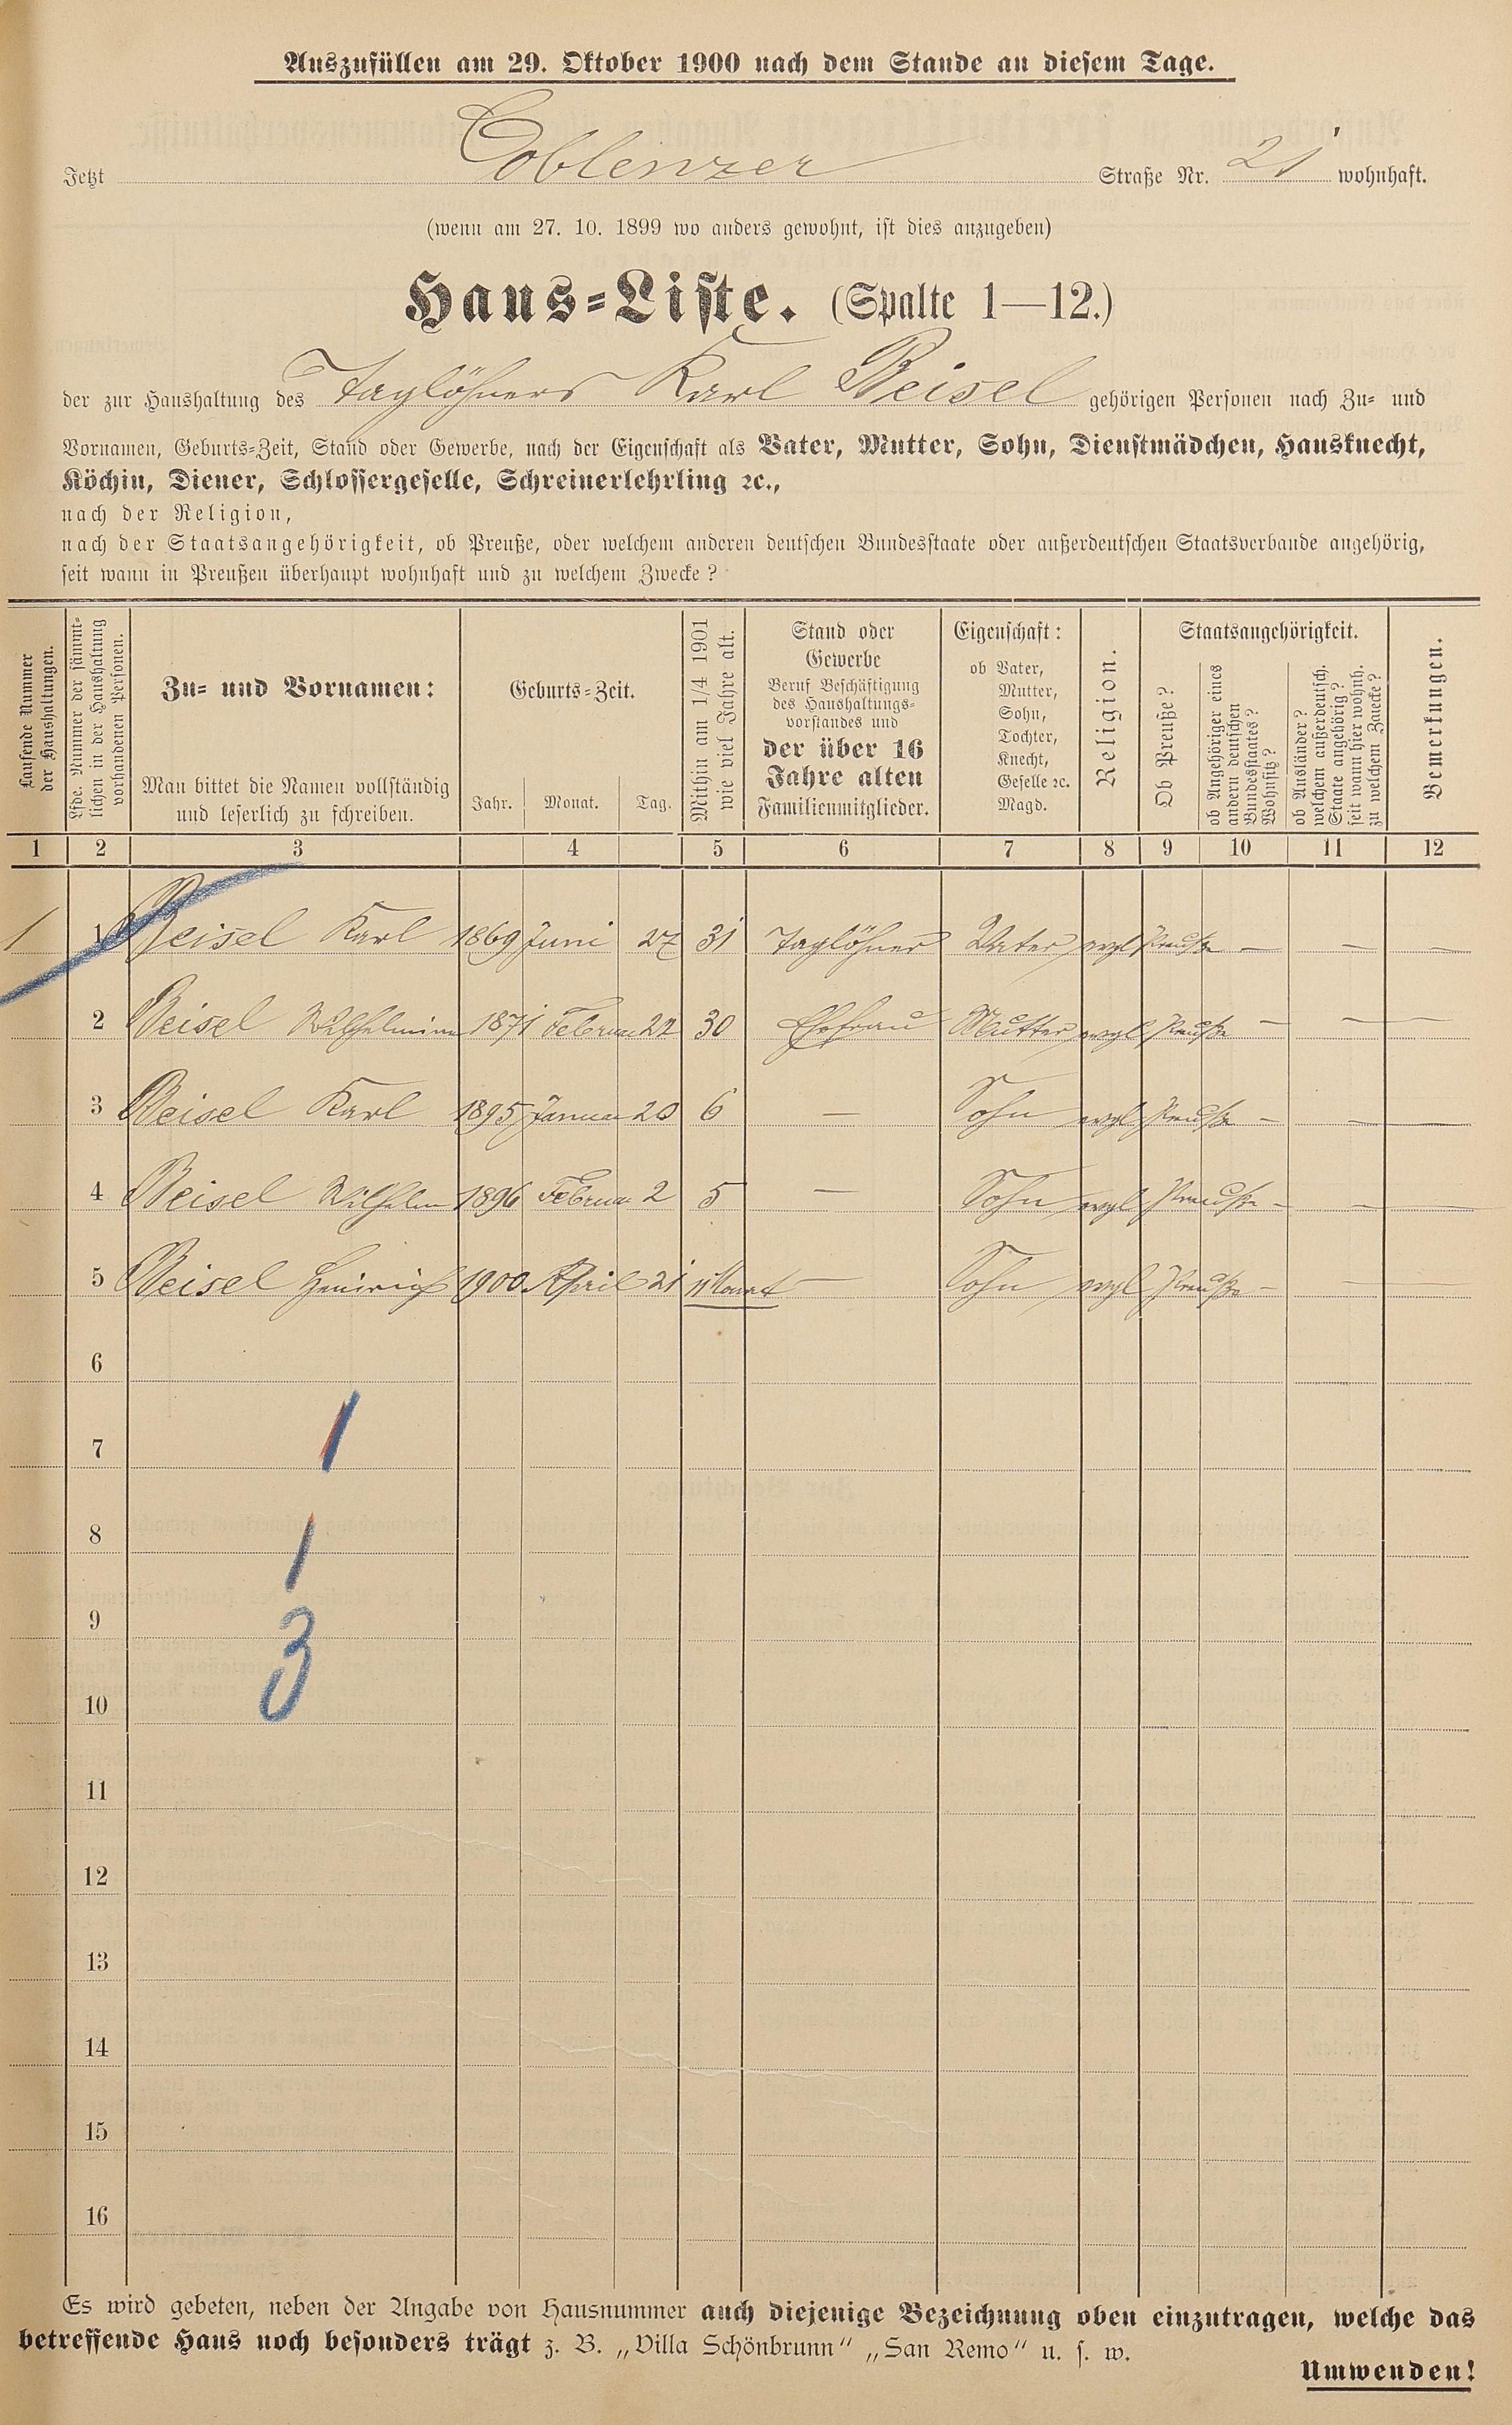 Auszufüllen am 29. Oktober 1900 nach dem Stande an diesem Tage.
Jetzt Coblenzer Straße Nr. 21 wohnhaft.
(wenn am 27. 10. 1899 wo anders gewohnt, ist dies anzugeben)
Haus-Liste. (Spalte 1—12.)
der zur Haushaltung des Taglöhners Karl Beisel gehörigen Personen nach Zu- und
Vornamen, Geburts-Zeit, Stand oder Gewerbe, nach der Eigenschaft als Vater, Mutter, Sohn, Dienstmädchen, Hausknecht,
Köchin, Diener, Schlossergeselle, Schreinerlehrling ꝛc.,
nach der Religion,
nach der Staatsangehörigkeit, ob Preuße, oder welchem anderen deutschen Bundesstaate oder außerdeutschen Staatsverbande angehörig,
seit wann in Preußen überhaupt wohnhaft und zu welchem Zwecke?
Laufende Nummer
der Haushaltungen.
Lfde. Nummer der sämmt-
lichen in der Haushaltung
vorhandenen Personen.
Zu- und Vornamen:
Man bittet die Namen vollständig
und leserlich zu schreiben.
Geburts-Zeit.
Jahr. Monat. Tag.
Mithin am 1/4 1901
wie viel Jahre alt.
Stand oder
Gewerbe
Beruf Beschäftigung
des Haushaltungs-
vorstandes und
der über 16
Jahre alten
Familienmitglieder.
Eigenschaft:
ob Vater,
Mutter,
Sohn,
Tochter,
Knecht,
Geselle ꝛc.
Magd.
Religion.
Staatsangehörigkeit.
Ob Preuße?
ob Angehöriger eines
andern deutschen
Bundesstaates?
Wohnsitz?
ob Ausländer?
welchem außerdeutsch.
Staate angehörig?
seit wann hier wohnh.
zu welchem Zwecke?
Bemerkungen.
1 2 3 4 5 6 7 8 9 10 11 12
1 1 Beisel Karl 1869 Juni 27 31 Taglöhner Vater evgl Preuße — — —
2 Beisel Wilhelmine 1871 Februar 22 30 Ehefrau Mutter evgl Preuße — — —
3 Beisel Karl 1895 Januar 20 6 — Sohn evgl Preuße — — —
4 Beisel Wilhelm 1896 Februar 2 5 — Sohn evgl Preuße — — —
5 Beisel Heinrich 1900 April 21 11 Monat — Sohn evgl Preuße — — —
6
7
1
8
1
9
3
10
11
12
13
14
15
16
Es wird gebeten, neben der Angabe von Hausnummer auch diejenige Bezeichnung oben einzutragen, welche das
betreffende Haus noch besonders trägt z. B. „Villa Schönbrunn“ „San Remo“ u. s. w.
Umwenden!